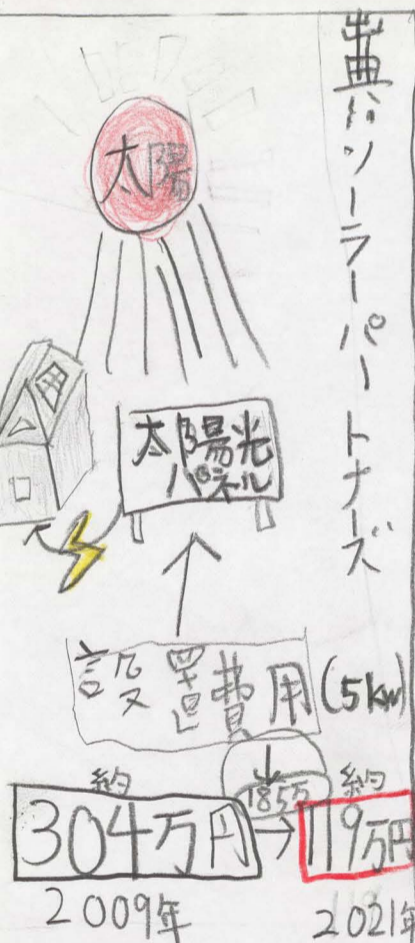 出典:ソーラーパートナーズ
太陽
太陽光
パネル
設置費用(5kw)
↓
185万
約 約
304万円→119万円
2009年 2021年